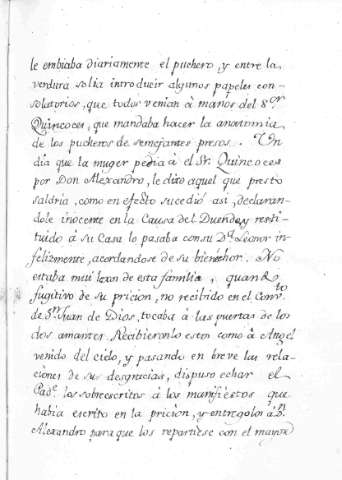 le embiaba diariamente el puchero, y entre la
verdura solia introducir algunos papeles con-
solatorios, que todos venian à manos del Sor
Quincoces, que mandaba hacer la anatomia
de los pucheros de semejantes presos. Un
dia que la muger pedia à el Sr. Quincoces
por Don Alexandro, le dixo aquel que presto
saldria, como en efecto sucediò asi, declaran-
dole inocente en la Causa del Duende, y resti-
tuido à su Casa lo pasaba con su Da. Leonor in-
felizmente, acordandose de su bienechor. No
estaba mui lexos de esta familia, quando
fugitivo de su pricion, no recibido en el Convto
de Sn. Juan de Dios, tocaba à las puertas de los
dos amantes. Recibieronlo estos como à Angel
venido del cielo, y pasando en breve las rela-
ciones de sus desgracias, dispuso echar el
Pade. los sobrescritos à los manifiestos que
habia escrito en la pricion, y entregolos à Dn.
Alexandro para que los repartiese con el mayor